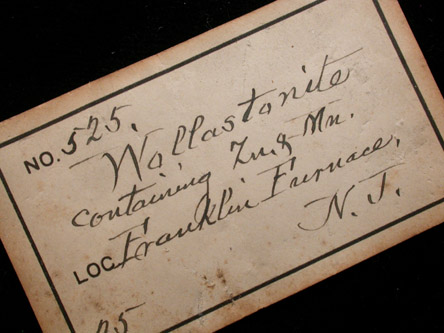 NO. 525.
Wollastonite
containing Zn. & Mn.
LOC. Franklin Furnace,
N. J.
25